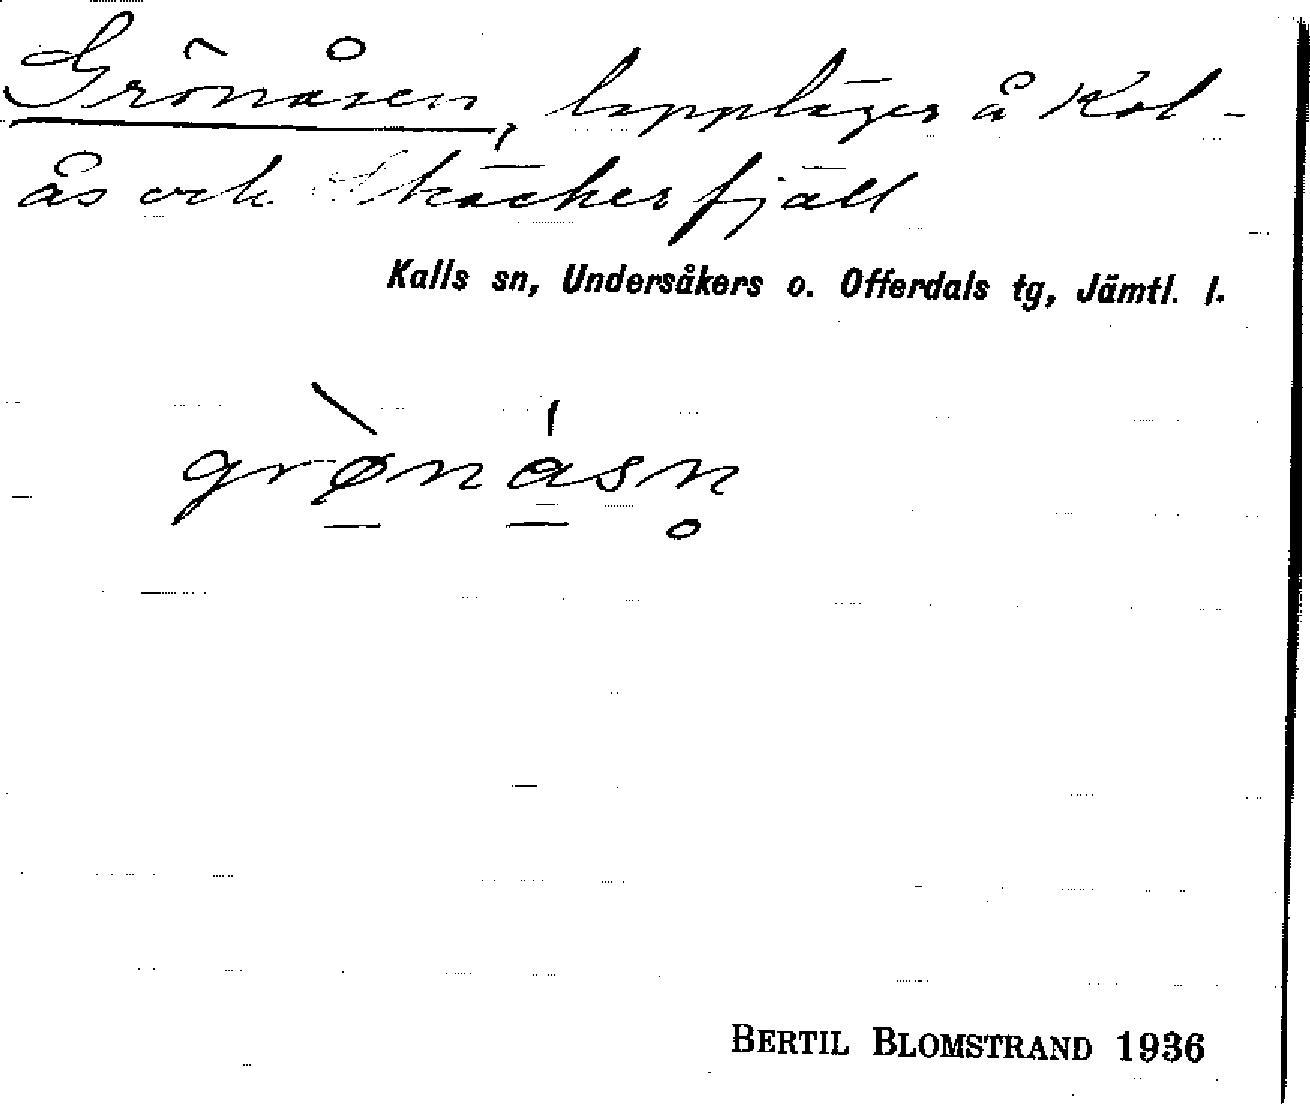 Grönåsen, lappläger å Kol-
ås och Skäckerfjäll
Kalls sn, Undersåkers o. Offerdals tg, Jämtl. l.
grø̀násn̥
BERTIL BLOMSTRAND 1936